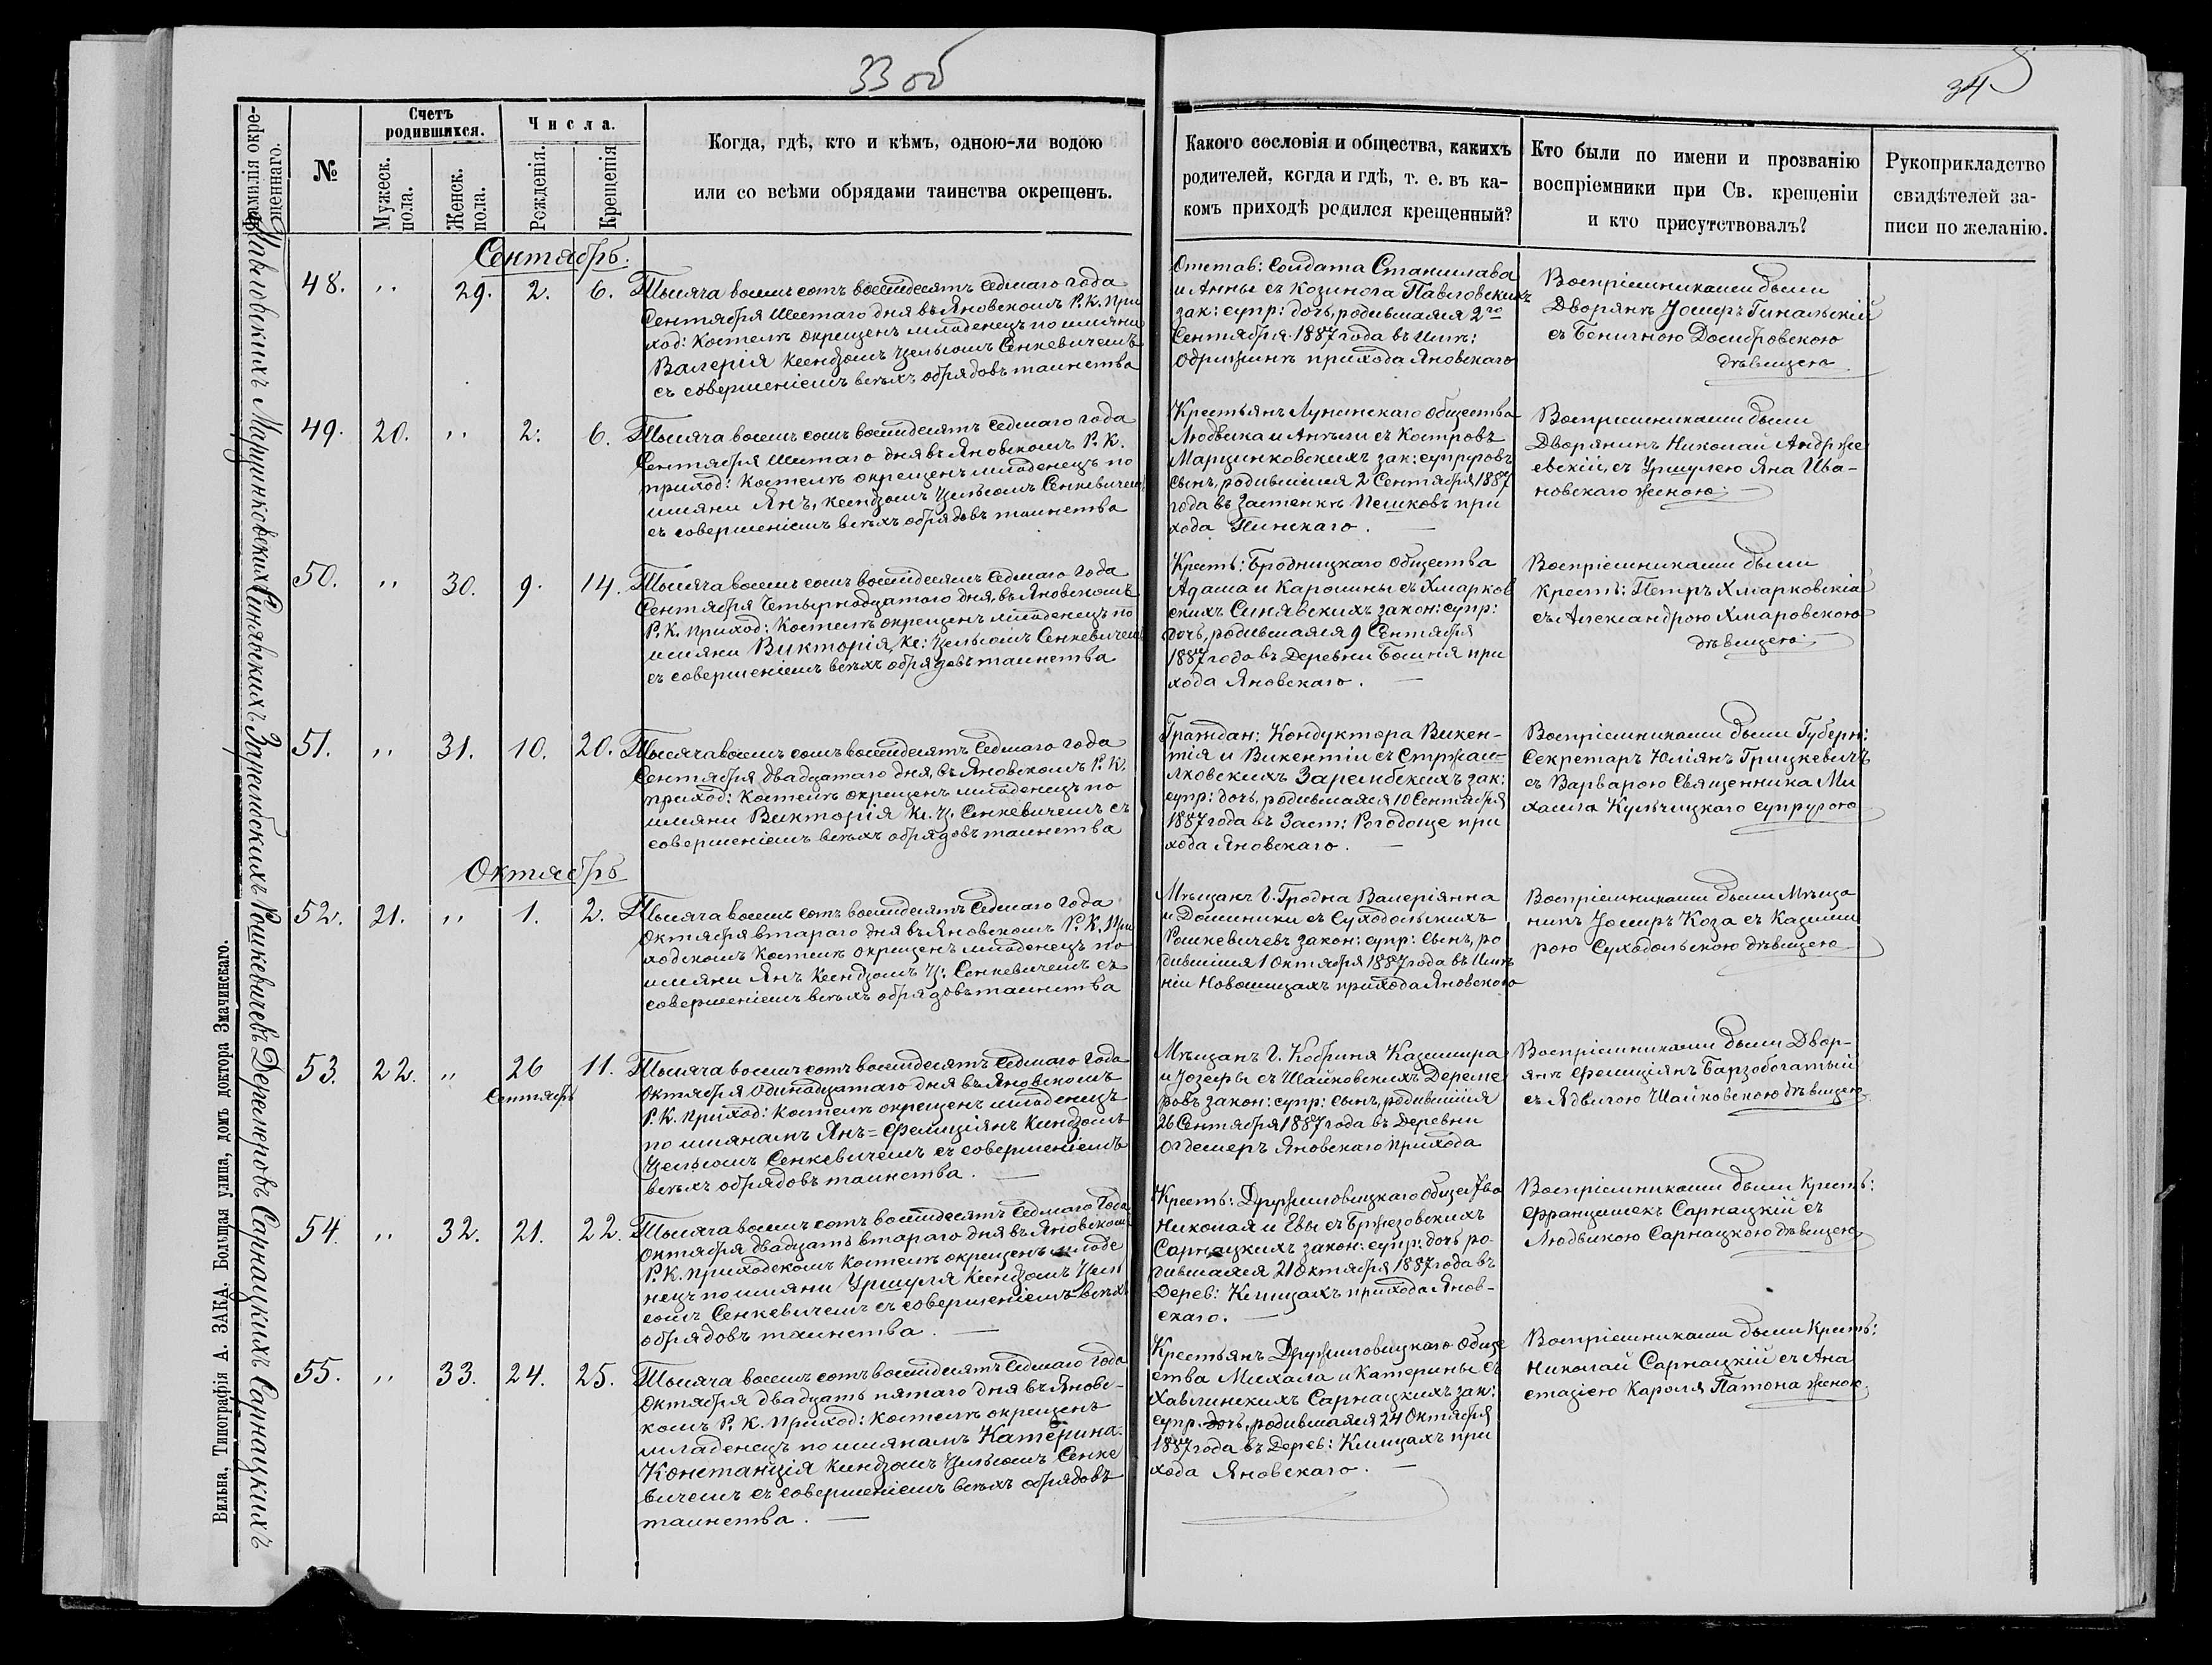 33 об
34
Фамилія окре-
щеннаго.
№
Счетъ
родившихся.
Мужеск.
пола.
Женск.
пола.
Числа.
Рожденія.
Крещенія
Когда, гдѣ, кто и кѣмъ, одною-ли водою
или со всѣми обрядами таинства окрещенъ.
Какого сословія и общества, какихъ
родителей, когда и гдѣ, т. е. въ ка-
комъ приходѣ родился крещенный?
Кто были по имени и прозванію
воспріемники при Св. крещеніи
и кто присутствовалъ?
Рукоприкладство
свидѣтелей за-
писи по желанію.
Сентябрь.
48. " 29. 2. 6.
Тысяча восемь сотъ восемдесятъ седмаго года
Сентября Шестаго дня въ Яновскомъ Р. К. При
ход: Костелѣ окрещенъ младенецъ по имяни
Валерія Ксендзомъ Цельсомъ Сенкевичемъ
съ совершеніемъ всѣхъ обрядовъ таинства
Отстав: Солдата Станислава
и Анны съ Павловскихъ
зак: супр: дочь, родившаяся 2го
Сентября 1887 года въ Имѣ:
прихода Яновскаго
Воспріемниками были
Дворянъ Іосифъ
съ Бенигною Домбровскою
дѣвицею
49. 20. " 2. 6.
Тысяча восемь сотъ восемдесятъ седмаго года
Сентября Шестаго дня въ Яновскомъ Р. К.
приход: Костелѣ окрещенъ младенецъ по
имяни Янъ, ксендзомъ Цельсомъ Сенкевичемъ
съ совершеніемъ всѣхъ обрядовъ таинства
Крестьянъ Лунинскаго Общества
Людвика и Анели съ Костровъ
Марцинковскихъ зак: супруговъ
сынъ, родившійся 2 Сентября 1887
года въ Застенкѣ при
хода Пинскаго.
Воспріемниками были
Дворянинъ Николай Андрже
евскій съ Уршулею Яна Ива-
новскаго женою.
50. " 30. 9. 14.
Тысяча восемь сотъ восемдесятъ седмаго года
Сентября Четырнадцатаго дня, въ Яновскомъ
Р. К. Приход: Костелѣ окрещенъ младенецъ по
имяни Викторія, Кс: Цельсомъ Сенкевичемъ
съ совершеніемъ всѣхъ обрядовъ таинства
Кресть: Бродницкаго Общества
Адама и Каролины съ Хмарков
скихъ Синявскихъ закон: супр:
дочь, родившаяся 9 Сентября
1887 года въ Деревни при
хода Яновскаго.
Воспріемниками были
Кресть: Петръ Хмарковскій
съ Александрою Хмаровскою
дѣвицею
51. " 31. 10. 20.
Тысяча восемь сотъ восемдесятъ седмаго года
Сентября двадцатаго дня, въ Яновскомъ Р. К.
приход: Костелѣ окрещенъ младенецъ по
имяни Викторія Кс. Ц. Сенкевичемъ съ
совершеніемъ всѣхъ обрядовъ таинства
Граждан: Кондуктора Викен-
тія и Викентіи съ
Зарембскихъ зак:
супр: дочь, родившаяся 10 Сентября
1887 года въ Заст: Рогодоще при
хода Яновскаго.
Воспріемниками были Губерн:
Секретаръ Юліянъ Грицкевичъ
съ Варварою Священника Ми
хаила Кульчицкаго супругою
Октябрь
52. 21. " 1. 2.
Тысяча восемь сотъ восемдесятъ седмаго года
Октября втараго дня въ Яновскомъ Р. К. При
ходскомъ Костелѣ окрещенъ младенецъ по
имяни Янъ Ксендзомъ Ц: Сенкевичемъ съ
совершеніемъ всѣхъ обрядовъ таинства
Мѣщанъ Г. Гродна Валеріянна
и Доминики съ Суходольскихъ
Рошкевичевъ закон: супр: сынъ, ро
дившійся 1 Октября 1887 года въ Имѣ
ніи Новошицахъ прихода Яновскаго
Воспріемниками были Мѣща
нинъ Іосифъ Коза съ Казими
рою Суходольскою дѣвицею
53. 22. " 26 11.
Сентябрь
Тысяча восемь сотъ восемдесятъ седмаго года
Октября Одинадцатаго дня въ Яновскомъ
Р. К. Приход: костелѣ окрещенъ младенецъ
по имянамъ Янъ=Фелиціянъ Ксендзомъ
Цельсомъ Сенкевичемъ съ совершеніемъ
всѣхъ обрядовъ таинства.
Мѣщанъ Г. Кобриня Казимира
и Іозефы съ Шайковскихъ Дереме
ровъ закон: супр: сынъ, родившійся
26 Сентября 1887 года въ Деревни
Огдемеръ Яновскаго прихода
Воспріемниками были Двор-
янъ Фелиціянъ Барзобогатый
съ Ядвигою Шайковскою дѣвицею
54. " 32. 21. 22.
Тысяча восемь сотъ восемдесятъ седмаго года
Октября двадцать втараго дня въ Яновскомъ
Р. К. приходскомъ костелѣ окрещенъ младе
нецъ по имяни Уршуля Ксендзомъ Цел
сомъ Сенкевичемъ съ совершеніемъ всѣхъ
обрядовъ таинства.
Кресть: Дружиловицкаго Общества
Николая и Евы съ Бржезовскихъ
Сарнацкихъ закон: супр: дочь ро-
дившаяся 21 Октября 1887 года въ
Дерев: Клищахъ прихода Янов-
скаго.
Воспріемниками были Кресть:
Францишекъ Сарнацкій съ
Людвикою Сарнацкою дѣвицею
55. " 33. 24. 25.
Тысяча восемь сотъ восемдесятъ седмаго года
Октября двадцать пятаго дня въ Яновс-
комъ Р. К. Приход: костелѣ окрещенъ
младенецъ по имянамъ Катерина-
Констанція Ксендзомъ Цельсомъ Сенке
вичемъ съ совершеніемъ всѣхъ обрядовъ
таинства.
Крестьянъ Дружиловицкаго Обще
ства Михала и Катерины съ
Сарнацкихъ зак:
супр. дочь, родившаяся 24 Октября
1887 года въ Дерев: Клищахъ при
хода Яновскаго.
Воспріемниками были Кресть:
Николай Сарнацкій съ Ана
стазіею Кароля Патона женою
Марцинковскихъ Синявскихъ Зарембскихъ Рошкевичевъ Деремеровъ Сарнацкихъ Сарнацкихъ
Вильна, Типографія А. ЗАКА, Большая улица, домъ доктора Змачинскаго.